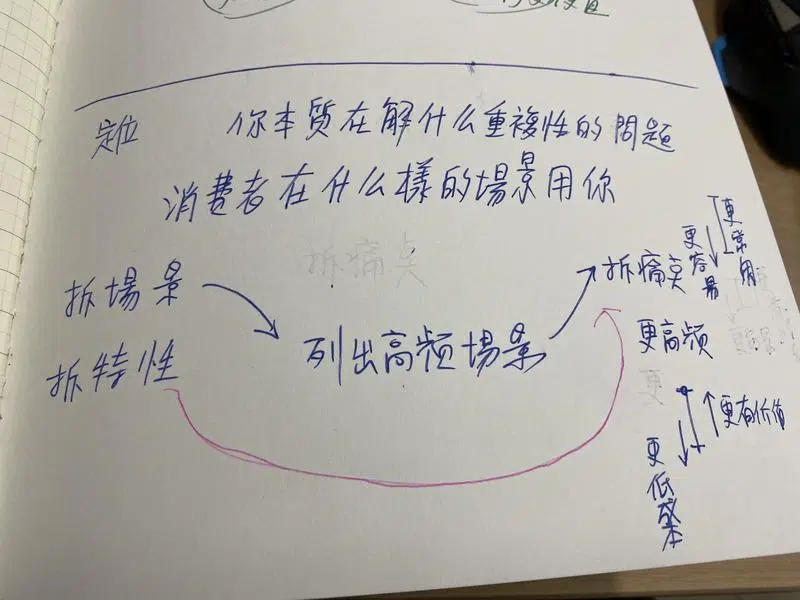 定位 你本質在解什么重複性的問題
消費者在什么樣的場景用你
拆痛点
拆場景
拆特性
列出高频場景
拆痛点
更容易
更常用
更高频
更
更有价值
更低成本